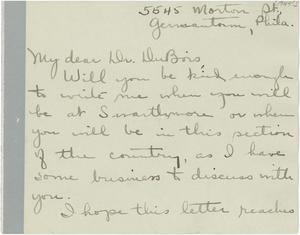 5545 Morton St.,
Germantown, Phila.
My dear Dr. DuBois
Will you be kind enough
to write me when you will
be at Swarthmore or when
you will be in this section
of the country, as I have
some business to discuss with
you.
I hope this letter reaches